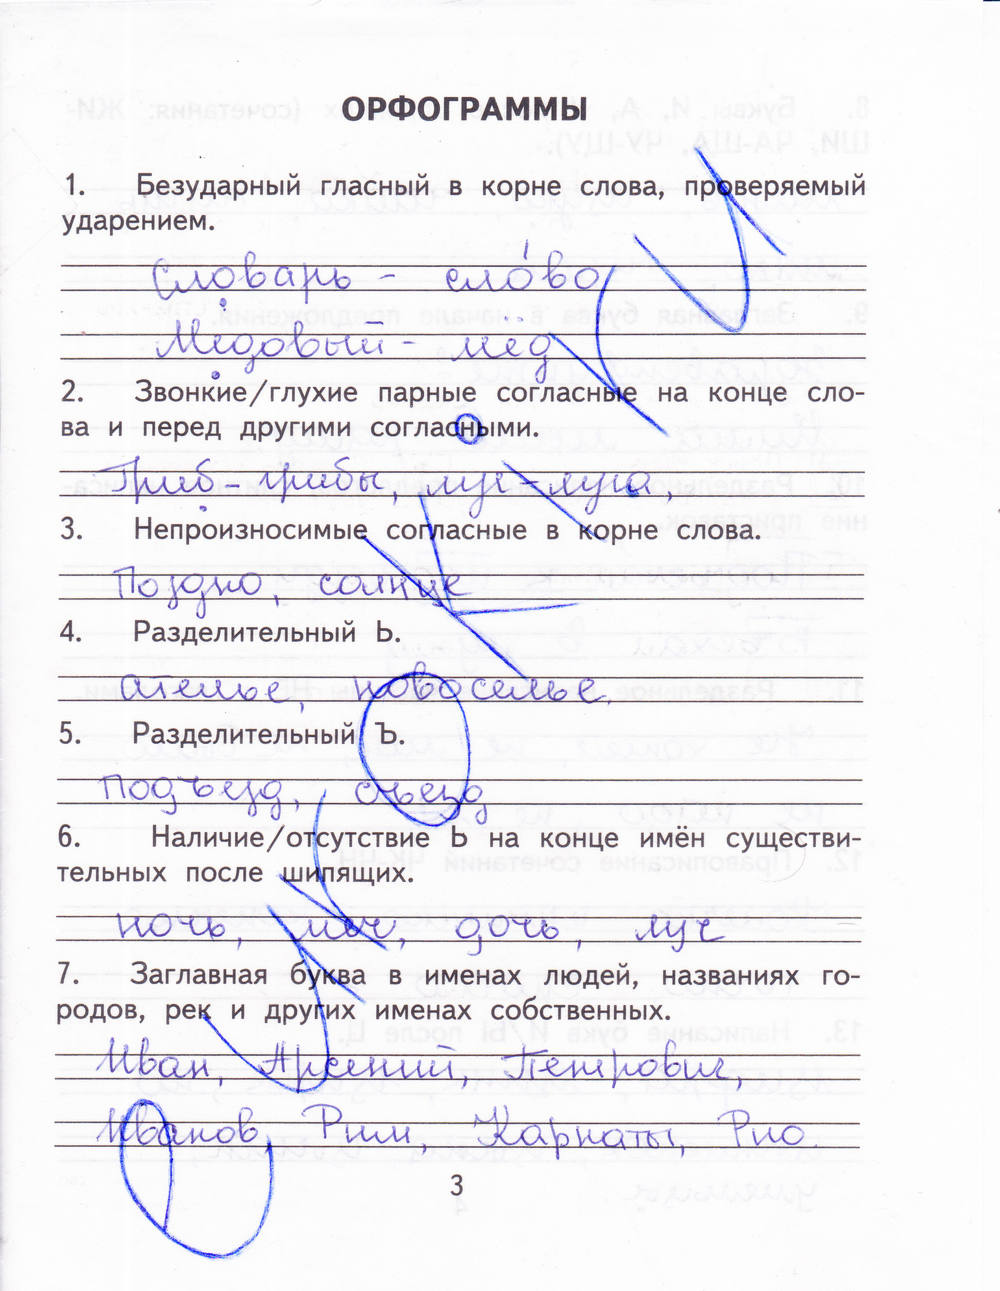 ОРФОГРАММЫ
1. Безударный гласный в корне слова, проверяемый
ударением.
Словарь - слово
Медовый - мёд
2. Звонкие/глухие парные согласные на конце сло-
ва и перед другими согласными.
Гриб - грибы, луг - луга,
3. Непроизносимые согласные в корне слова.
Поздно, солнце
4. Разделительный Ь.
ателье, новоселье.
5. Разделительный Ъ.
подъезд, съезд
6. Наличие/отсутствие Ь на конце имён существи-
тельных после шипящих.
ночь, мяч, дочь, луч
7. Заглавная буква в именах людей, названиях го-
родов, рек и других именах собственных.
Иван, Арсений, Петрович,
Иванов, Рим, Карпаты, Рио
3